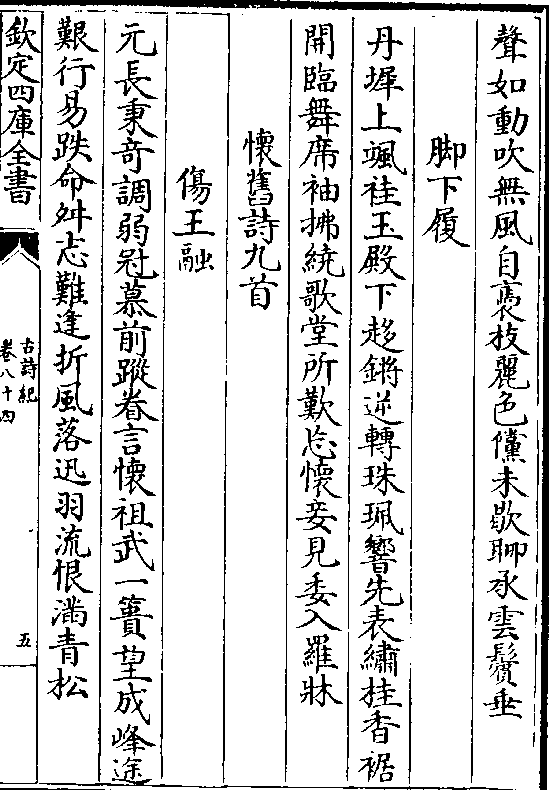 聲如動吹無風自褭枝麗色儻未歇聊承雲鬢垂
脚下履
丹墀上颯袿玉殿下趍鏘逆轉珠珮響先表繡桂香裾
開臨舞席袖拂繞歌堂所歎忘懷妾見委入羅牀
懷舊詩九首
傷王融
元長秉竒調弱冠慕前蹤眷言懷祖武一簣望成峰途
艱行易跌命舛志難逢折風落迅羽流恨滿青松
欽定四庫全書
古詩紀
卷八十四
五